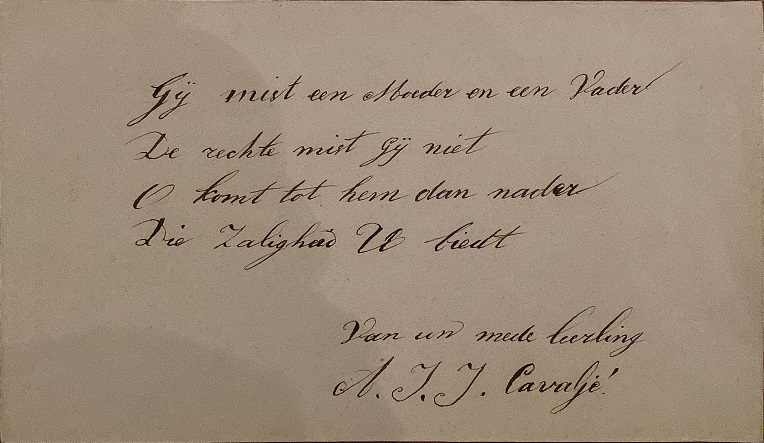 Gÿ mist een Moeder en een Vader
De rechte mist gÿ niet
O komt tot hem dan nader
Die Zaligheid U biedt
Van uw mede leerling
A. J. J. Cavaljé